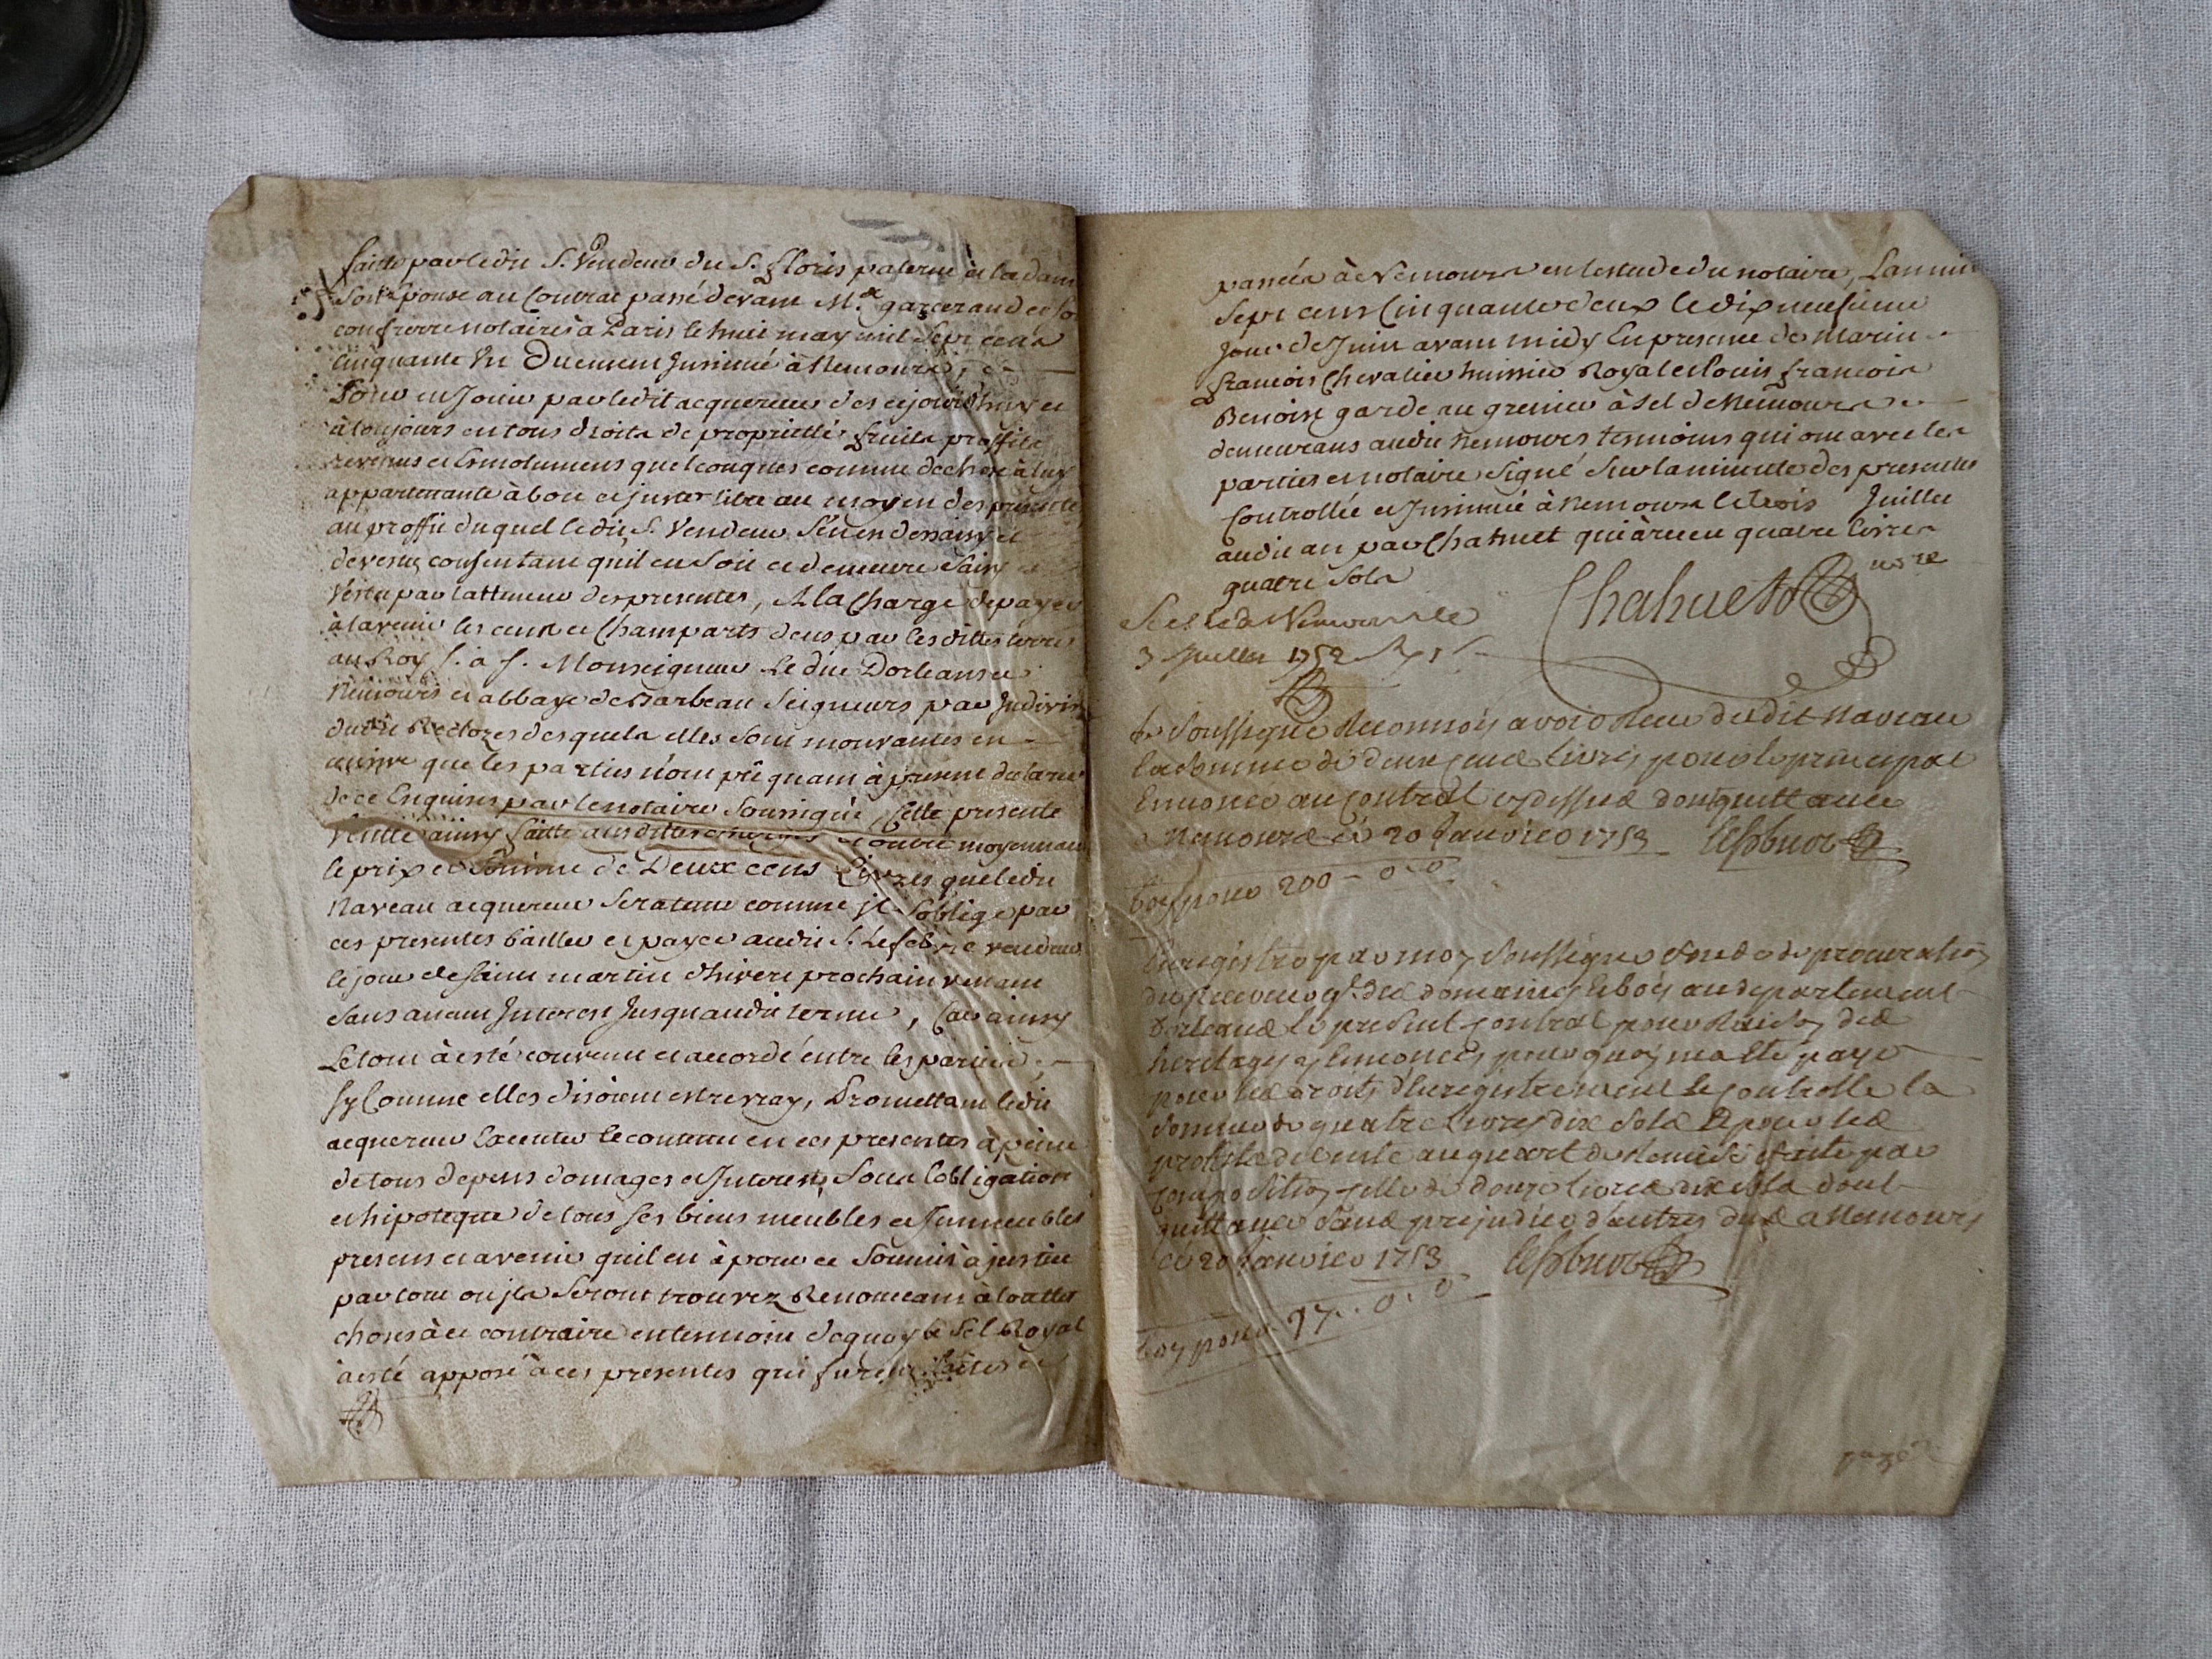 faitte par ledit S. Vendeur du S. floris paterne et la dame
Son Epouse au Contrat passé devant M.e garcerand et so
confrere notaires à Paris le huit may mil Sept cens
Cinquante Un Duement Jnsinué à Nemours,
Pour en Jouir par ledit acquereur des ce jourdhuy et
à toujours en tous droits de proprietté fruits proffits
revenus et Emolumens quelconques comme de chose à luy
appartenante à bon et juste titre au moyen des presentes
au proffit duquel ledit S. Vendeur S'en est dessaisy et
devestu consentant qu'il en Soit et demeure Saisy et
Vestu par la tteneur des presentes, A la Charge de payer
à l'avenir les cens et Champarts deus par les dittes terres
au Roy S. a S. Monseigneur Le duc Dorleans et
Nemours et abbaye de Barbeau Seigneurs par Jndivis
dudit Rectozes desquels elles Sont mouvantes en
censive que les parties n'ont pû quant à present declarer
de ce Enquises par le notaire Soussigné, Cette presente
Vente ainsy faitte ausdittes charges et outre moyennant
le prix et Somme de Deux cens Livres que ledit
Naveau acquereur Sera tenu comme jl S'oblige par
ces presentes bailler et payer audit S. Lefebvre vendeur
le jour de Saint martin d'hivert prochain venant
Sans aucun Jnterest Jusqu'audit terme, Car ainsy
Le tout à esté convenu et accordé entre les parties,
Sy Comme elles disoient estre vray, Promettant ledit
acquereur Executer le contenu en ces presentes à peine
de tous depens domages et Jnterests Sous l'obligation
et hipoteque de tous ses biens meubles et Jmmeubles
presens et avenir qu'il en à pour ce Soumis à justice
par tout ou jls Seront trouvez Renonceant à touttes
choses à ce contraire en temoin de quoy le Sel Royal
à esté apposé à ces presentes qui furent faittes et
passées à Nemours en l'estude du notaire, L'an mil
Sept cens Cinquante deux le dix neufieme
Jour de Juin avant midy En presence de Marin
francois Chevalier huissier Royal et Louis francois
Benoist garde au grenier à Sel de Nemours
demeurans audit Nemours temoins qui ont avec les
parties et notaire Signé Sur la minutte des presentes
Controllée et Jnsinuée à Nemours le trois Juillet
audit an par Chahuet qui à receu quatre livres
quatre Sols
Chahuet nore
Scellé à Nemours le
3 Juillet 1752
Je Soussigné Reconnois avoir Receu dudit Naveau
la Somme de deux cens Livres pour le principal
Enoncé au Contrat cy dessus dont quittance
a Nemours ce 20 Janvier 1753 lefebvre
bon pour 200 - 0 - 0
Enregistré par moy Soussigné fondé de procuration
du Receveur gl. des domaines et bois au departement
Dorleans Le present Contrat pour Raison des
heritages y Enoncés pour quoy m'a esté payé
pour les droits d'Enregistrement et Controlle la
Somme de quatre Livres dix Sols Et pour les
profits de cens au quart de Remise faite par
composition celle de douze livres dix Sols dont
quittance Sans prejudice d'autres dus a Nemours
ce 20 Janvier 1753 lefebvre
bon pour 17 . . 0 . 0